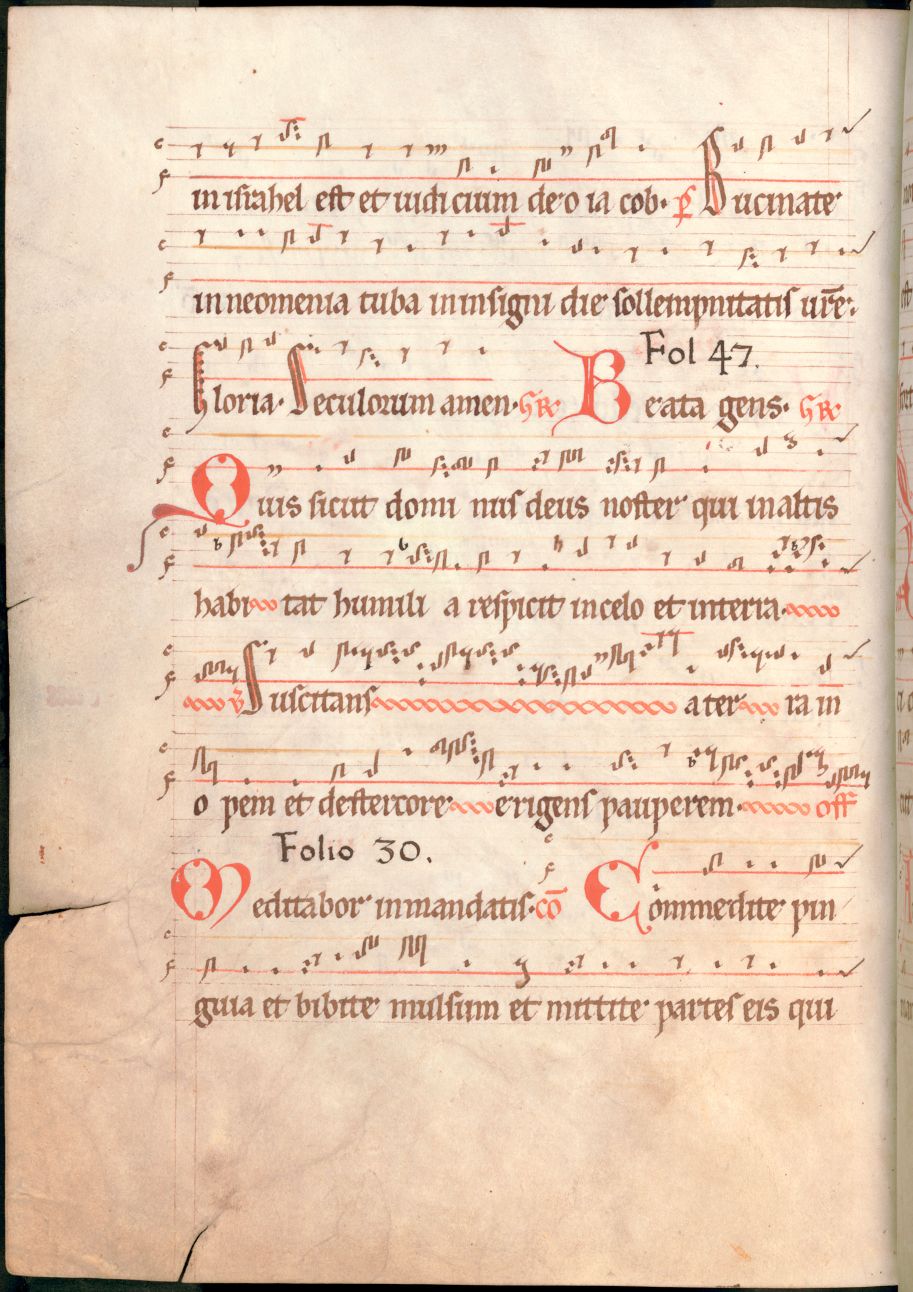 in israhel est et iudicium deo ia cob. p̄ Bucinate
in neomenia tuba in insigni die sollempnitatis ur̄e.
Gloria. Seculorum amen. GR Fol 47. Beata gens. GR
Quis sicut domi nus deus noster qui in altis
habi tat humili a respicit in celo et in terra.
V̄ Suscitans a ter ra in
o pem et de stercore erigens pauperem. off
Folio 30.
Meditabor in mandatis. cō Commedite pin
guia et bibite mulsum et mittite partes eis qui